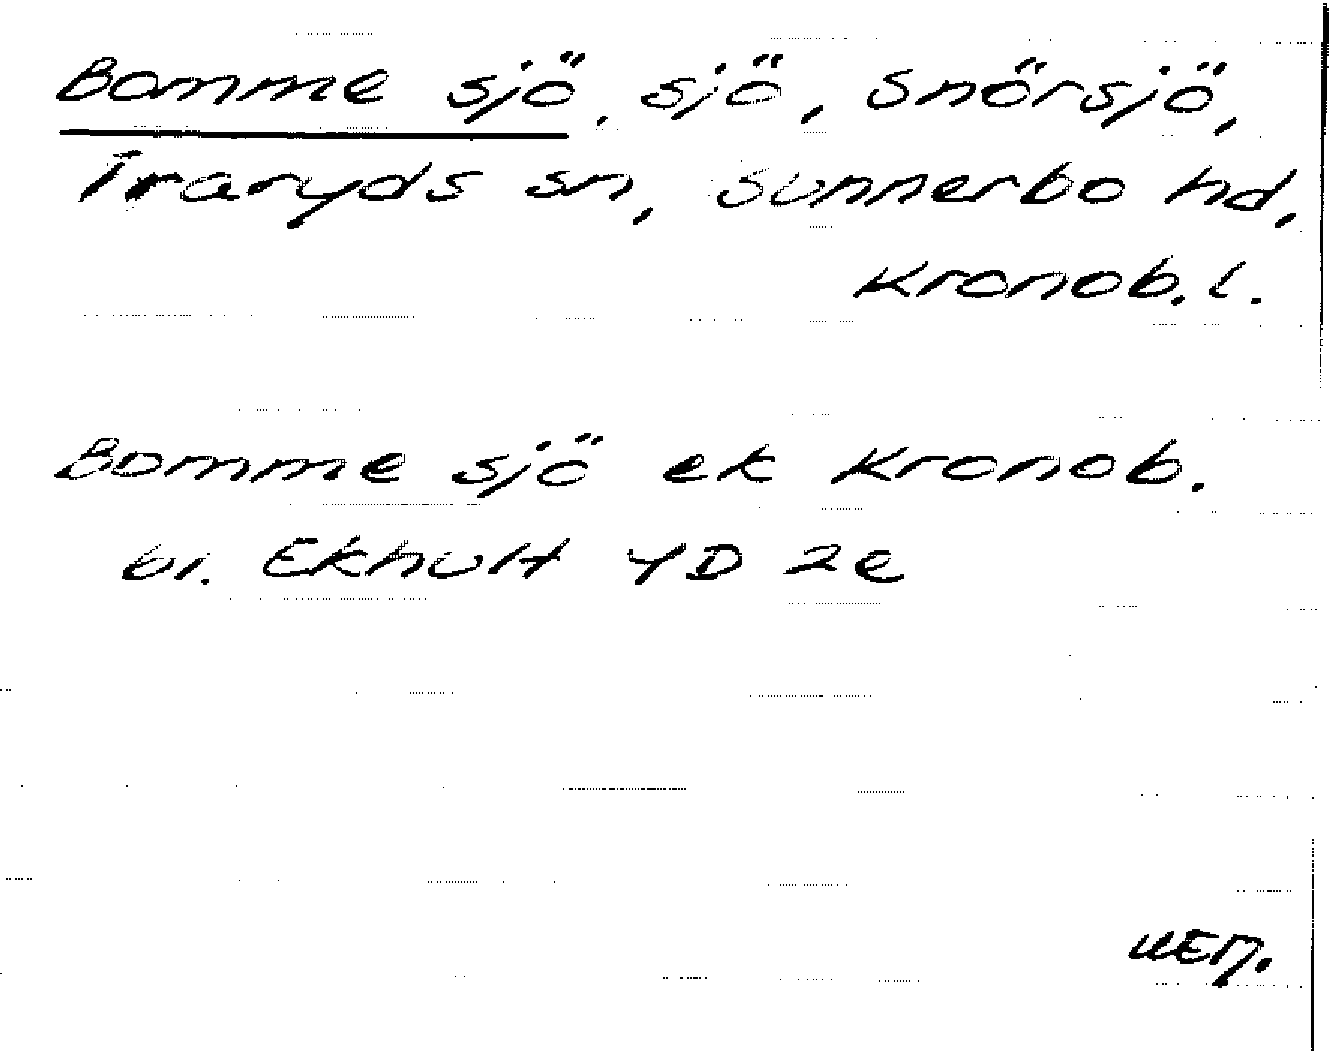 Bomme sjö, sjö, Snörsjö,
Traryds sn, Sunnerbo hd,
Kronob. l.
Bomme sjö ek Kronob.
bl. Ekhult 4D 2e